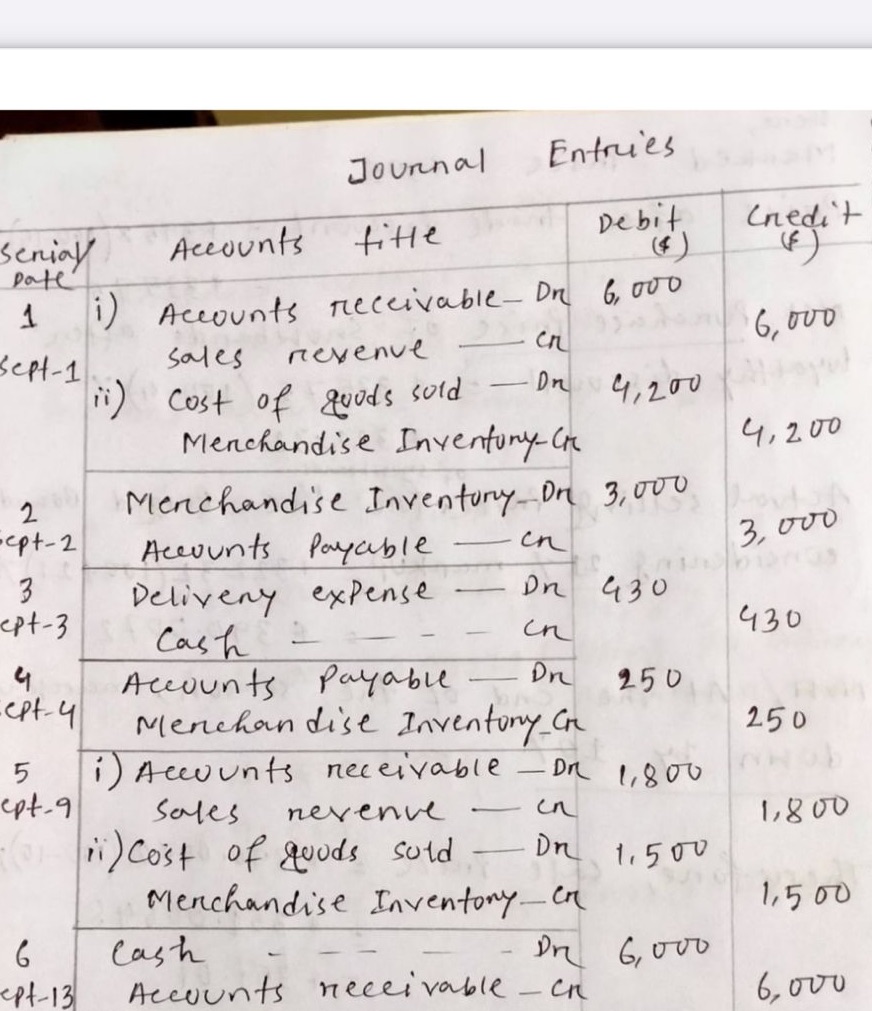 Journal Entries
Serial/ Date Accounts title Debit ($) Credit ($)
1 i) Accounts receivable - Dr 6,000
Sept-1 Sales revenue — Cr 6,000
ii) Cost of goods sold — Dr 4,200
Merchandise Inventory - Cr 4,200
2 Merchandise Inventory - Dr 3,000
ept-2 Accounts Payable — Cr 3,000
3 Delivery expense — Dr 430
ept-3 Cash — - - - Cr 430
4 Accounts Payable — Dr 250
ept-4 Merchandise Inventory - Cr 250
5 i) Accounts receivable — Dr 1,800
ept-9 Sales revenue — Cr 1,800
ii) Cost of goods sold — Dr 1,500
Merchandise Inventory - Cr 1,500
6 Cash - - - - - Dr 6,000
ept-13 Accounts receivable - Cr 6,000